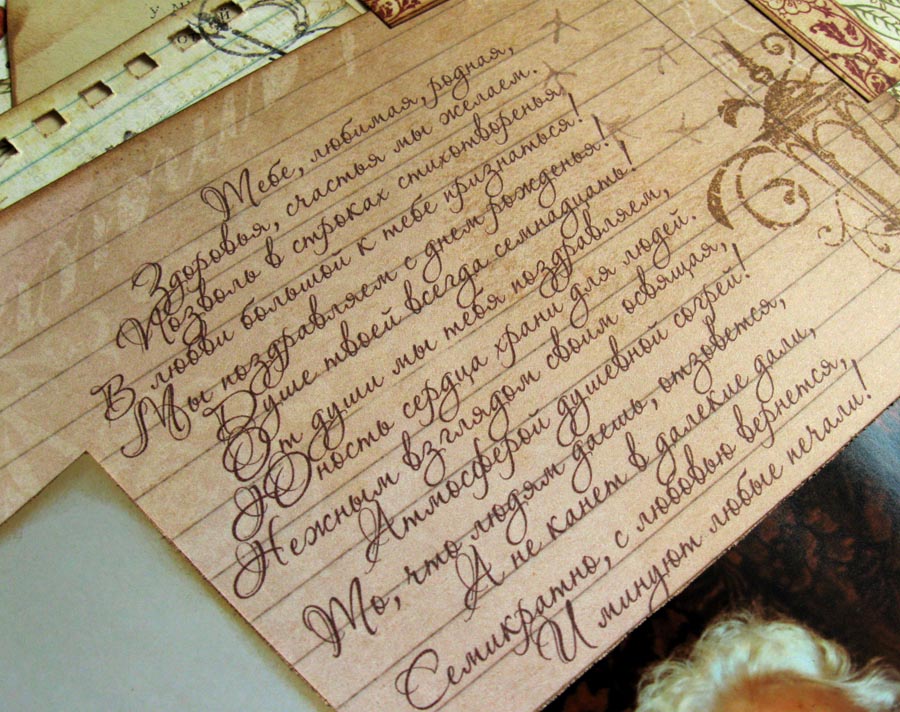 Тебе, любимая, родная,
Здоровья, счастья мы желаем.
Позволь в строках стихотворенья
В любви большой к тебе признаться!
Мы поздравляем с днем рожденья!
Душе твоей всегда семнадцать!
От души мы тебя поздравляем,
Юность сердца храни для людей.
Нежным взглядом своим освящая,
Атмосферой душевной согрей!
То, что людям даешь, отзовется,
А не канет в далекие дали,
Семикратно, с любовью вернется,
И минуют любые печали!